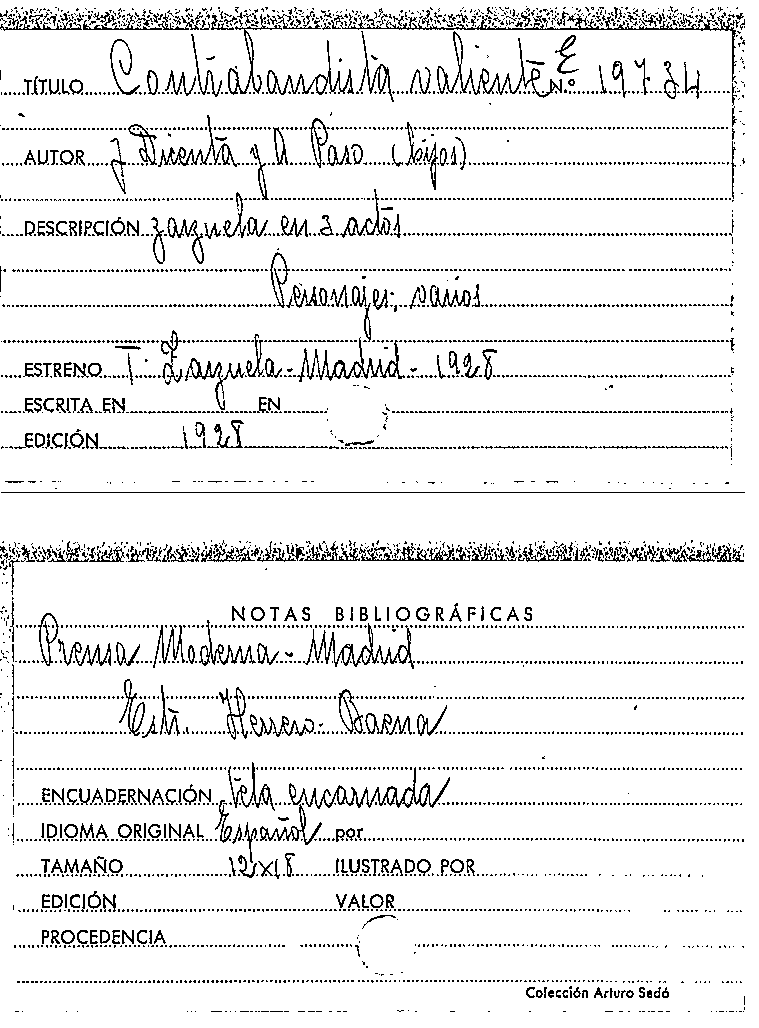 TÍTULO Contrabandista valiente Nº E 19734
AUTOR J Dicenta y A Paso (hijos)
DESCRIPCIÓN zarzuela en 3 actos
Personajes, varios
ESTRENO T. Zarzuela - Madrid - 1928
ESCRITA EN EN
EDICIÓN 1928
NOTAS BIBLIOGRÁFICAS
Prensa Moderna - Madrid
Estr. Herrero - Baena
ENCUADERNACIÓN Tela encarnada
IDIOMA ORIGINAL Español por
TAMAÑO 12x18 ILUSTRADO POR
EDICIÓN VALOR
PROCEDENCIA
Colección Arturo Sedó